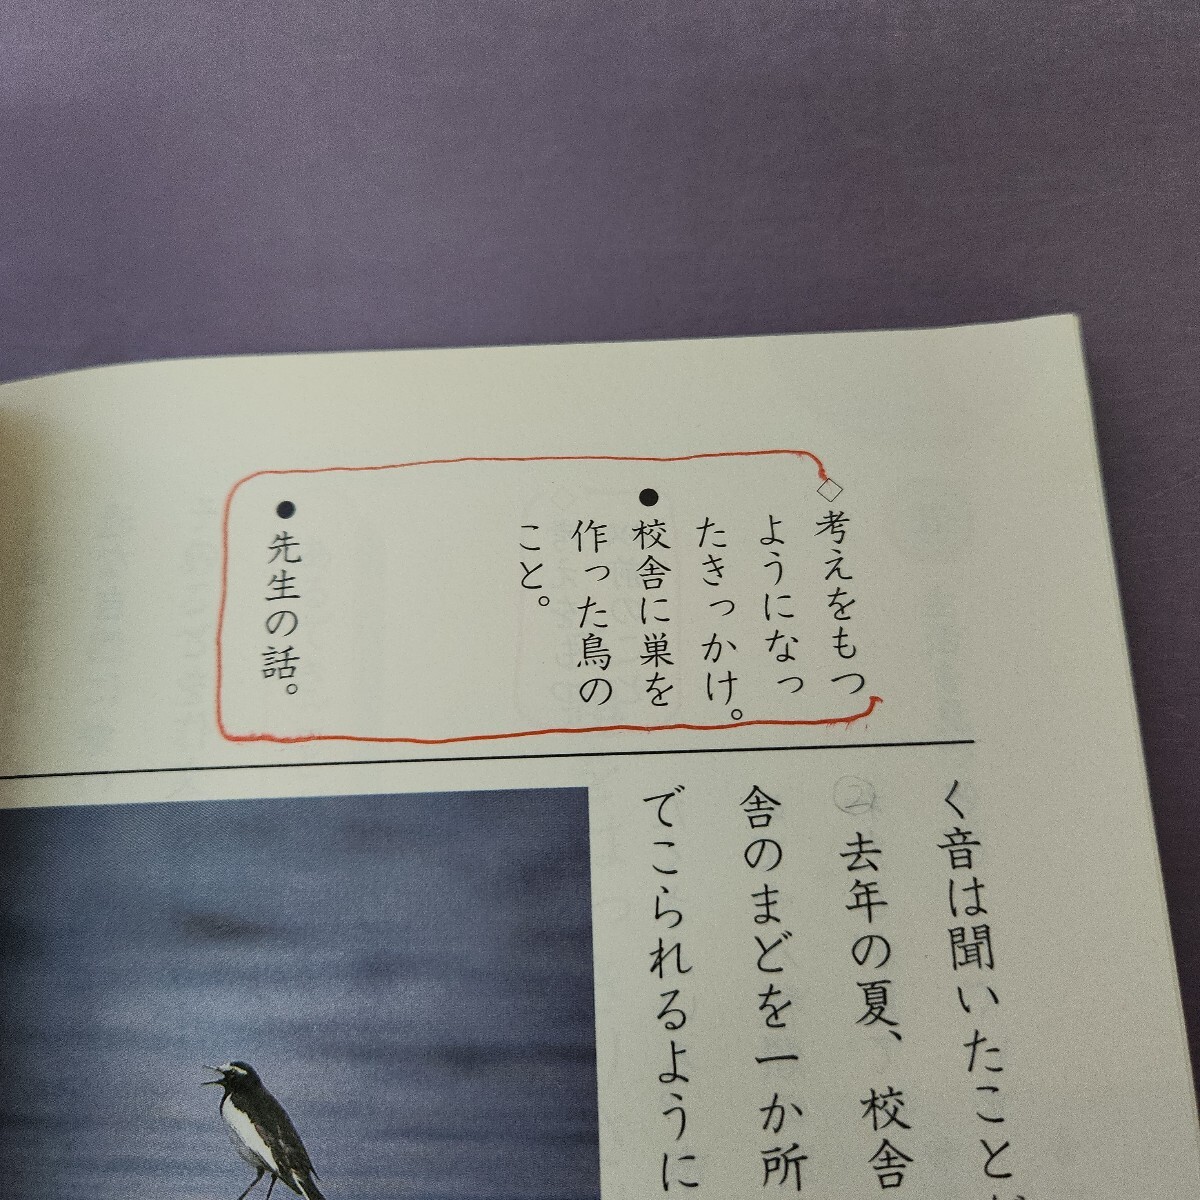 ◇考えをもつ
ようになっ
たきっかけ。
●校舎に巣を
作った鳥の
こと。
●先生の話。
く音は聞いたこと
② 去年の夏、校舎
舎のまどを一か所
でこられるように